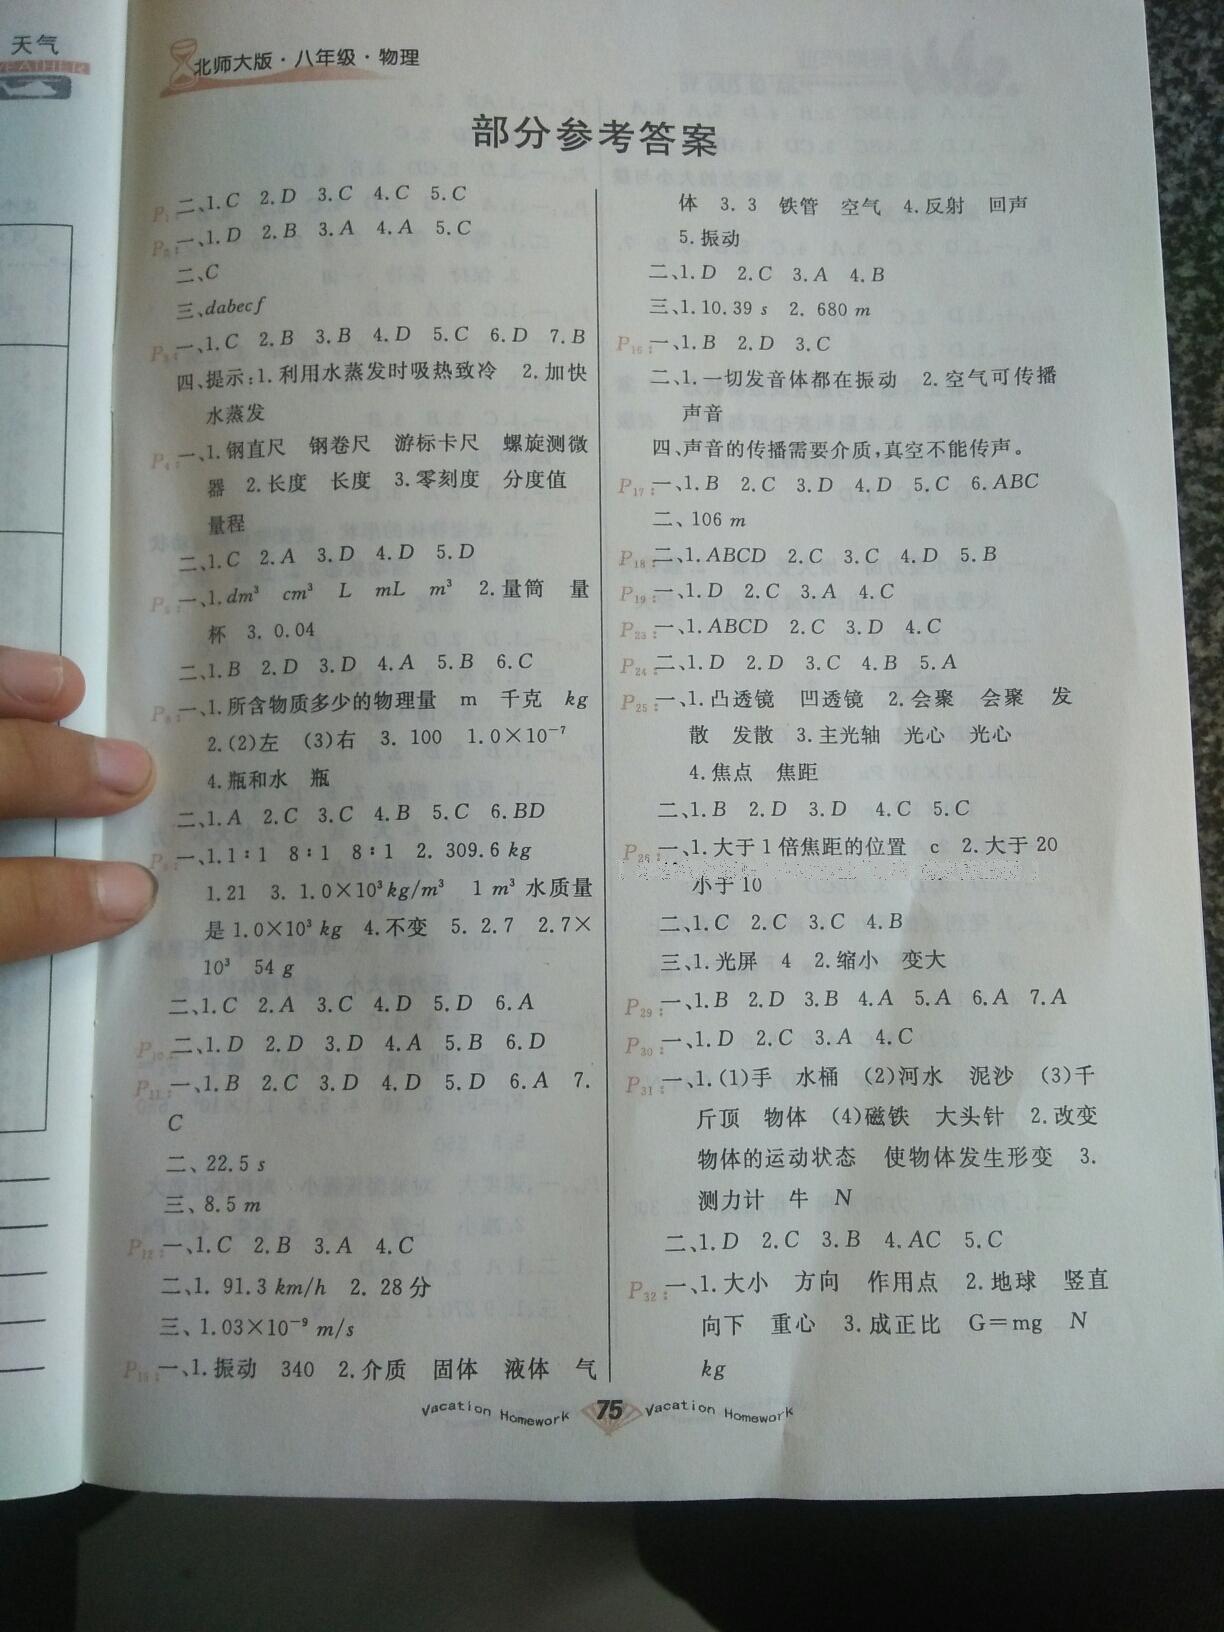 天气
北师大版·八年级·物理
部分参考答案
P1: 二、1.C 2.D 3.C 4.C 5.C
P2: 一、1.D 2.B 3.A 4.A 5.C
二、C
三、dabecf
P3: 一、1.C 2.B 3.B 4.D 5.C 6.D 7.B
四、提示:1.利用水蒸发时吸热致冷 2.加快
水蒸发
P4: 一、1.钢直尺 钢卷尺 游标卡尺 螺旋测微
器 2.长度 长度 3.零刻度 分度值
量程
二、1.C 2.A 3.D 4.D 5.D
P5: 一、1.dm³ cm³ L mL m³ 2.量筒 量
杯 3. 0.04
二、1.B 2.D 3.D 4.A 5.B 6.C
P8: 一、1.所含物质多少的物理量 m 千克 kg
2.(2)左 (3)右 3. 100 1.0×10⁻⁷
4.瓶和水 瓶
二、1.A 2.C 3.C 4.B 5.C 6.BD
P9: 一、1.1∶1 8∶1 8∶1 2. 309.6 kg
1.21 3. 1.0×10³kg/m³ 1 m³ 水质量
是1.0×10³ kg 4.不变 5. 2.7 2.7×
10³ 54 g
二、1.C 2.A 3.C 4.D 5.D 6.A
P10: 二、1.D 2.D 3.D 4.A 5.B 6.D
P11: 一、1.B 2.C 3.D 4.D 5.D 6.A 7.
C
二、22.5 s
三、8.5 m
P12: 一、1.C 2.B 3.A 4.C
二、1. 91.3 km/h 2. 28分
三、1.03×10⁻⁹ m/s
P15: 一、1.振动 340 2.介质 固体 液体 气
体 3. 3 铁管 空气 4.反射 回声
5.振动
二、1.D 2.C 3.A 4.B
三、1. 10.39 s 2. 680 m
P16: 一、1.B 2.D 3.C
二、1.一切发音体都在振动 2.空气可传播
声音
四、声音的传播需要介质,真空不能传声。
P17: 一、1.B 2.C 3.D 4.D 5.C 6.ABC
二、106 m
P18: 二、1.ABCD 2.C 3.C 4.D 5.B
P19: 一、1.D 2.C 3.A 4.C
P23: 一、1.ABCD 2.C 3.D 4.C
P24: 二、1.D 2.D 3.C 4.B 5.A
P25: 一、1.凸透镜 凹透镜 2.会聚 会聚 发
散 发散 3.主光轴 光心 光心
4.焦点 焦距
二、1.B 2.D 3.D 4.C 5.C
P26: 一、1.大于1倍焦距的位置 c 2.大于20
小于10
二、1.C 2.C 3.C 4.B
三、1.光屏 4 2.缩小 变大
P29: 一、1.B 2.D 3.B 4.A 5.A 6.A 7.A
P30: 一、1.D 2.C 3.A 4.C
P31: 一、1.(1)手 水桶 (2)河水 泥沙 (3)千
斤顶 物体 (4)磁铁 大头针 2.改变
物体的运动状态 使物体发生形变 3.
测力计 牛 N
二、1.D 2.C 3.B 4.AC 5.C
P32: 一、1.大小 方向 作用点 2.地球 竖直
向下 重心 3.成正比 G=mg N
kg
Vacation Homework 75 Vacation Homework